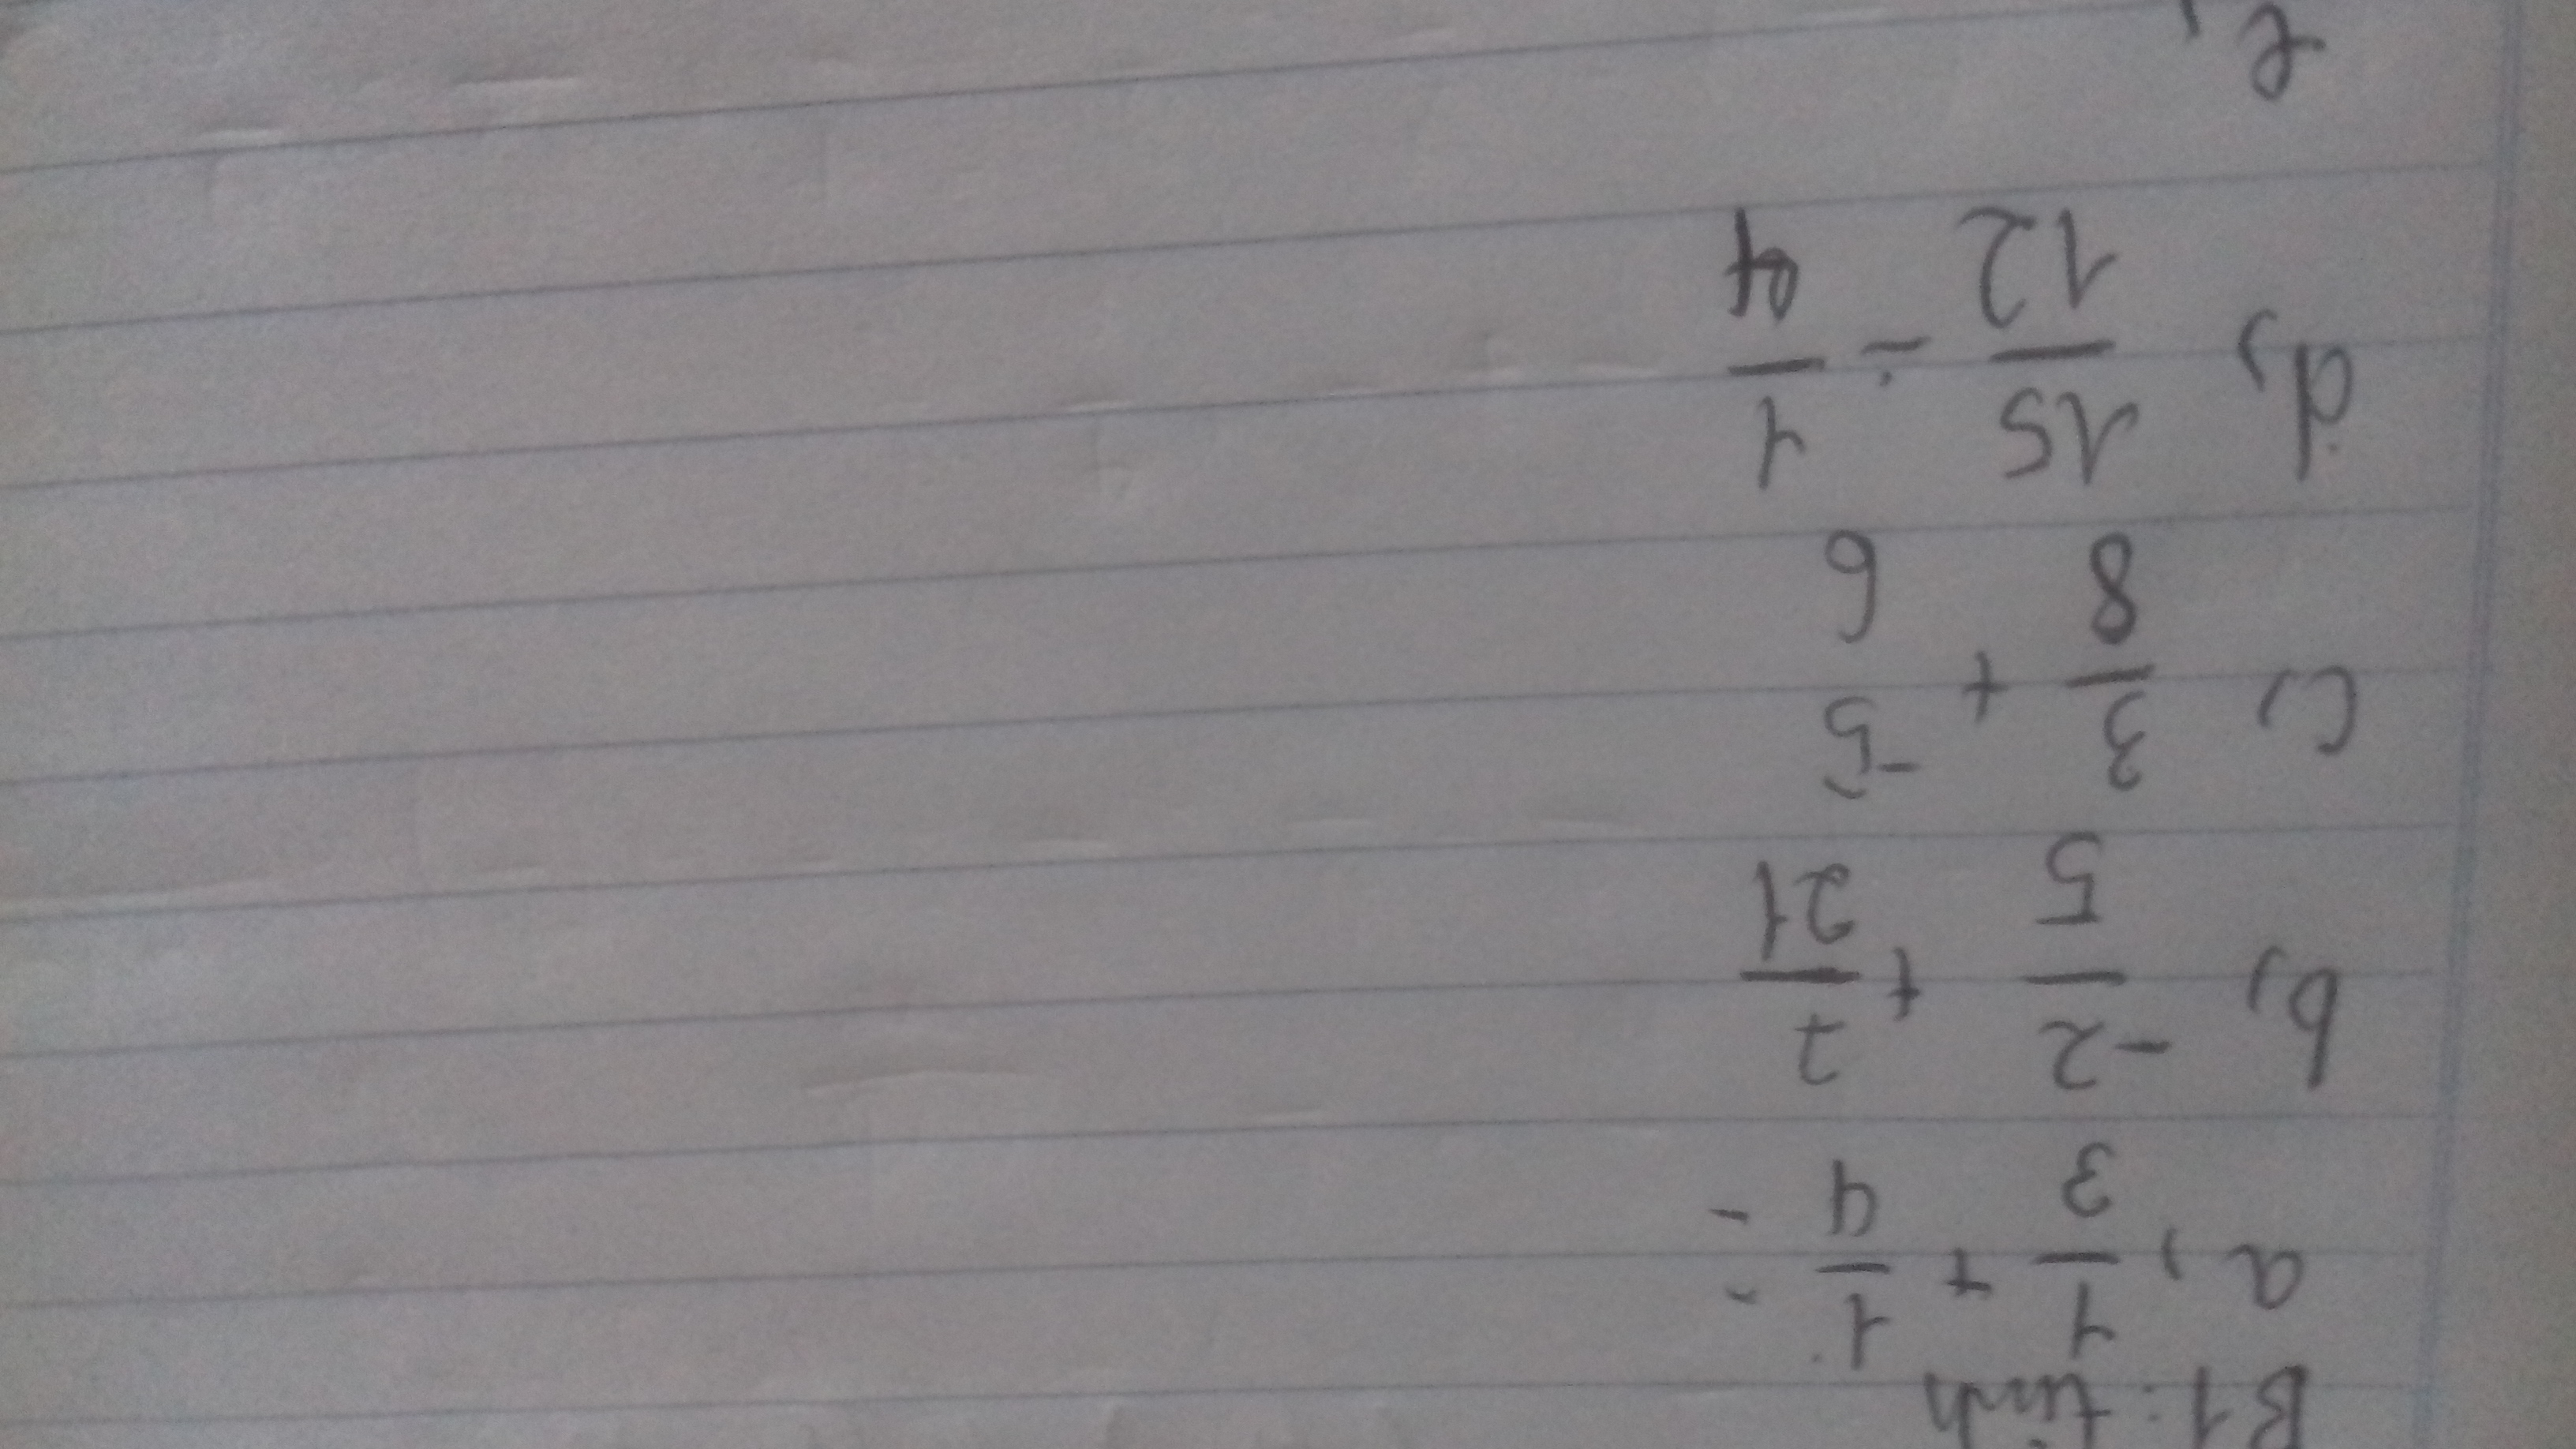 B1: tính
a, 1/3 + 1/4
b, -2/5 + 7/21
c, 3/8 + -5/6
d, 15/12 - 1/4
e,